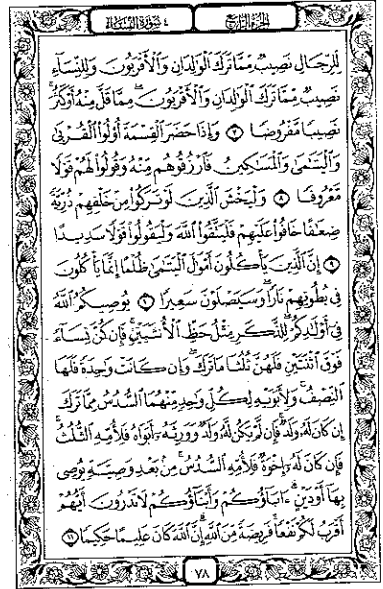 الجزء الرابع ٤ سورة النساء
لِّلرِّجَالِ نَصِيبٌ مِّمَّا تَرَكَ ٱلْوَٰلِدَانِ وَٱلْأَقْرَبُونَ وَلِلنِّسَآءِ
نَصِيبٌ مِّمَّا تَرَكَ ٱلْوَٰلِدَانِ وَٱلْأَقْرَبُونَ مِمَّا قَلَّ مِنْهُ أَوْ كَثُرَ
نَصِيبًا مَّفْرُوضًا ٧ وَإِذَا حَضَرَ ٱلْقِسْمَةَ أُو۟لُوا۟ ٱلْقُرْبَىٰ
وَٱلْيَتَٰمَىٰ وَٱلْمَسَٰكِينُ فَٱرْزُقُوهُم مِّنْهُ وَقُولُوا۟ لَهُمْ قَوْلًا
مَّعْرُوفًا ٨ وَلْيَخْشَ ٱلَّذِينَ لَوْ تَرَكُوا۟ مِنْ خَلْفِهِمْ ذُرِّيَّةً
ضِعَٰفًا خَافُوا۟ عَلَيْهِمْ فَلْيَتَّقُوا۟ ٱللَّهَ وَلْيَقُولُوا۟ قَوْلًا سَدِيدًا
٩ إِنَّ ٱلَّذِينَ يَأْكُلُونَ أَمْوَٰلَ ٱلْيَتَٰمَىٰ ظُلْمًا إِنَّمَا يَأْكُلُونَ
فِى بُطُونِهِمْ نَارًا وَسَيَصْلَوْنَ سَعِيرًا ١٠ يُوصِيكُمُ ٱللَّهُ
فِىٓ أَوْلَٰدِكُمْ لِلذَّكَرِ مِثْلُ حَظِّ ٱلْأُنثَيَيْنِ فَإِن كُنَّ نِسَآءً
فَوْقَ ٱثْنَتَيْنِ فَلَهُنَّ ثُلُثَا مَا تَرَكَ وَإِن كَانَتْ وَٰحِدَةً فَلَهَا
ٱلنِّصْفُ وَلِأَبَوَيْهِ لِكُلِّ وَٰحِدٍ مِّنْهُمَا ٱلسُّدُسُ مِمَّا تَرَكَ
إِن كَانَ لَهُۥ وَلَدٌ فَإِن لَّمْ يَكُن لَّهُۥ وَلَدٌ وَوَرِثَهُۥٓ أَبَوَاهُ فَلِأُمِّهِ ٱلثُّلُثُ
فَإِن كَانَ لَهُۥٓ إِخْوَةٌ فَلِأُمِّهِ ٱلسُّدُسُ مِنۢ بَعْدِ وَصِيَّةٍ يُوصِى
بِهَآ أَوْ دَيْنٍ ءَابَآؤُكُمْ وَأَبْنَآؤُكُمْ لَا تَدْرُونَ أَيُّهُمْ
أَقْرَبُ لَكُمْ نَفْعًا فَرِيضَةً مِّنَ ٱللَّهِ إِنَّ ٱللَّهَ كَانَ عَلِيمًا حَكِيمًا ١١
٧٨